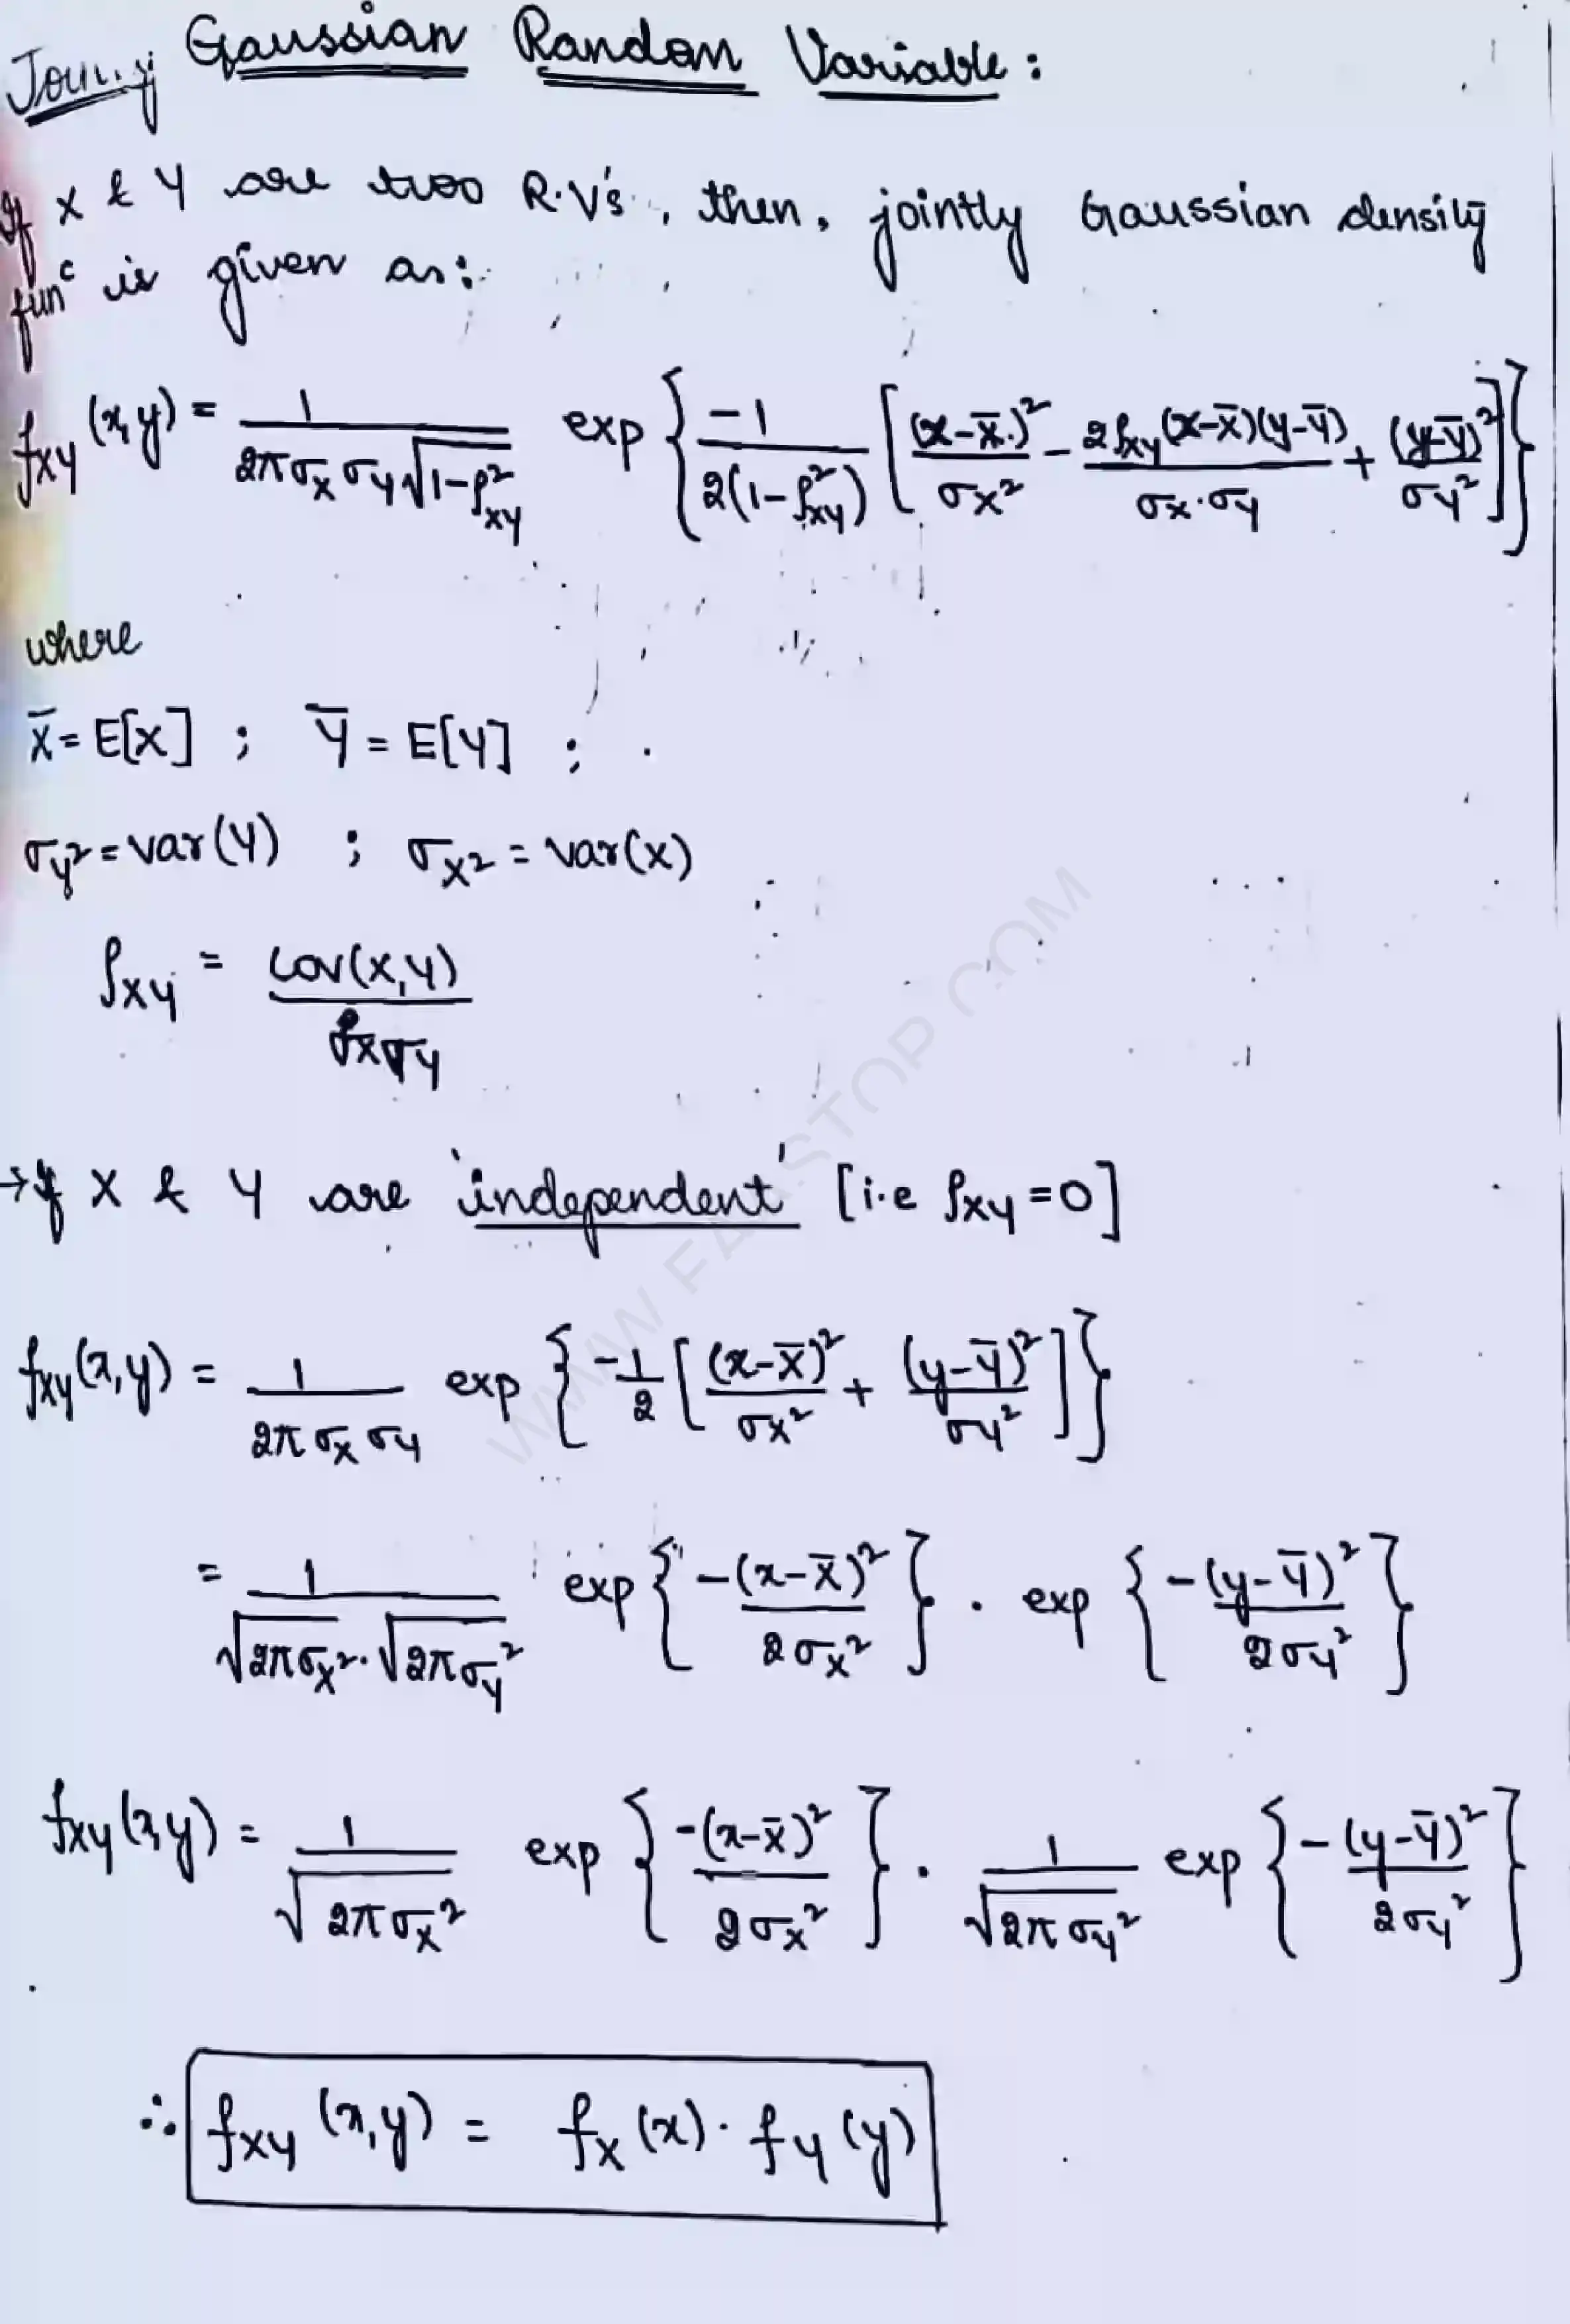 Jointly Gaussian Random Variable:
If X & Y are two R.V's, then, jointly Gaussian density
funᶜ is given as:
f_XY (x,y) = 1 / (2π σ_X σ_Y √(1-ρ²_XY)) exp { -1 / (2(1-ρ²_XY)) [ (x-X̄)² / σ_X² - 2ρ_XY (x-X̄)(y-Ȳ) / (σ_X·σ_Y) + (y-Ȳ)² / σ_Y² ] }
where
X̄ = E[X] ; Ȳ = E[Y] ;
σ_Y² = var(Y) ; σ_X² = var(X)
ρ_XY = cov(X,Y) / (σ_X σ_Y)
→ If X & Y are 'independent' [i.e ρ_XY = 0]
f_XY(x,y) = 1 / (2π σ_X σ_Y) exp { -1/2 [ (x-X̄)² / σ_X² + (y-Ȳ)² / σ_Y² ] }
= 1 / (√(2πσ_X²)·√(2πσ_Y²)) exp { -(x-X̄)² / 2σ_X² } · exp { -(y-Ȳ)² / 2σ_Y² }
f_XY(x,y) = 1 / √(2πσ_X²) exp { -(x-X̄)² / 2σ_X² } · 1 / √(2πσ_Y²) exp { -(y-Ȳ)² / 2σ_Y² }
∴ f_XY (x,y) = f_X (x) · f_Y (y)